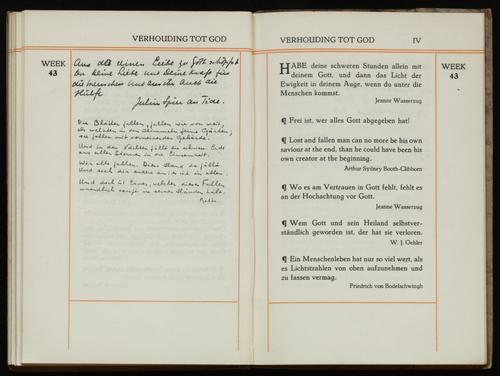 VERHOUDING TOT GOD
WEEK
43
Aus der innen Liebe zu Gott schöpfst
Du Deine Liebe und Deine Kraft für
die Menschen und auch die
Hülfe
Julius Spier an Tide.
Die Blätter fallen, fallen wie von weit,
als welkten in den Himmeln ferne Gärten;
sie fallen mit verneinender Gebärde.
Und in den Nächten fällt die schwere Erde
aus allen Sternen in die Einsamkeit.
Wir alle fallen. Diese Hand da fällt.
Und sieh dir andre an: es ist in allen.
Und doch ist Einer, welcher dieses Fallen
unendlich sanft in seinen Händen hält.
Rilke.
VERHOUDING TOT GOD IV
WEEK
43
HABE deine schweren Stunden allein mit
deinem Gott, und dann das Licht der
Ewigkeit in deinem Auge, wenn du unter die
Menschen kommst.
Jeanne Wasserzug
¶ Frei ist, wer alles Gott abgegeben hat!
¶ Lost and fallen man can no more be his own
saviour at the end, than he could have been his
own creator at the beginning.
Arthur Sydney Booth-Clibborn
¶ Wo es am Vertrauen in Gott fehlt, fehlt es
an der Hochachtung vor Gott.
Jeanne Wasserzug
¶ Wem Gott und sein Heiland selbstver-
ständlich geworden ist, der hat sie verloren.
W. J. Oehler
¶ Ein Menschenleben hat nur so viel wert, als
es Lichtstrahlen von oben aufzunehmen und
zu fassen vermag.
Friedrich von Bodelschwingh